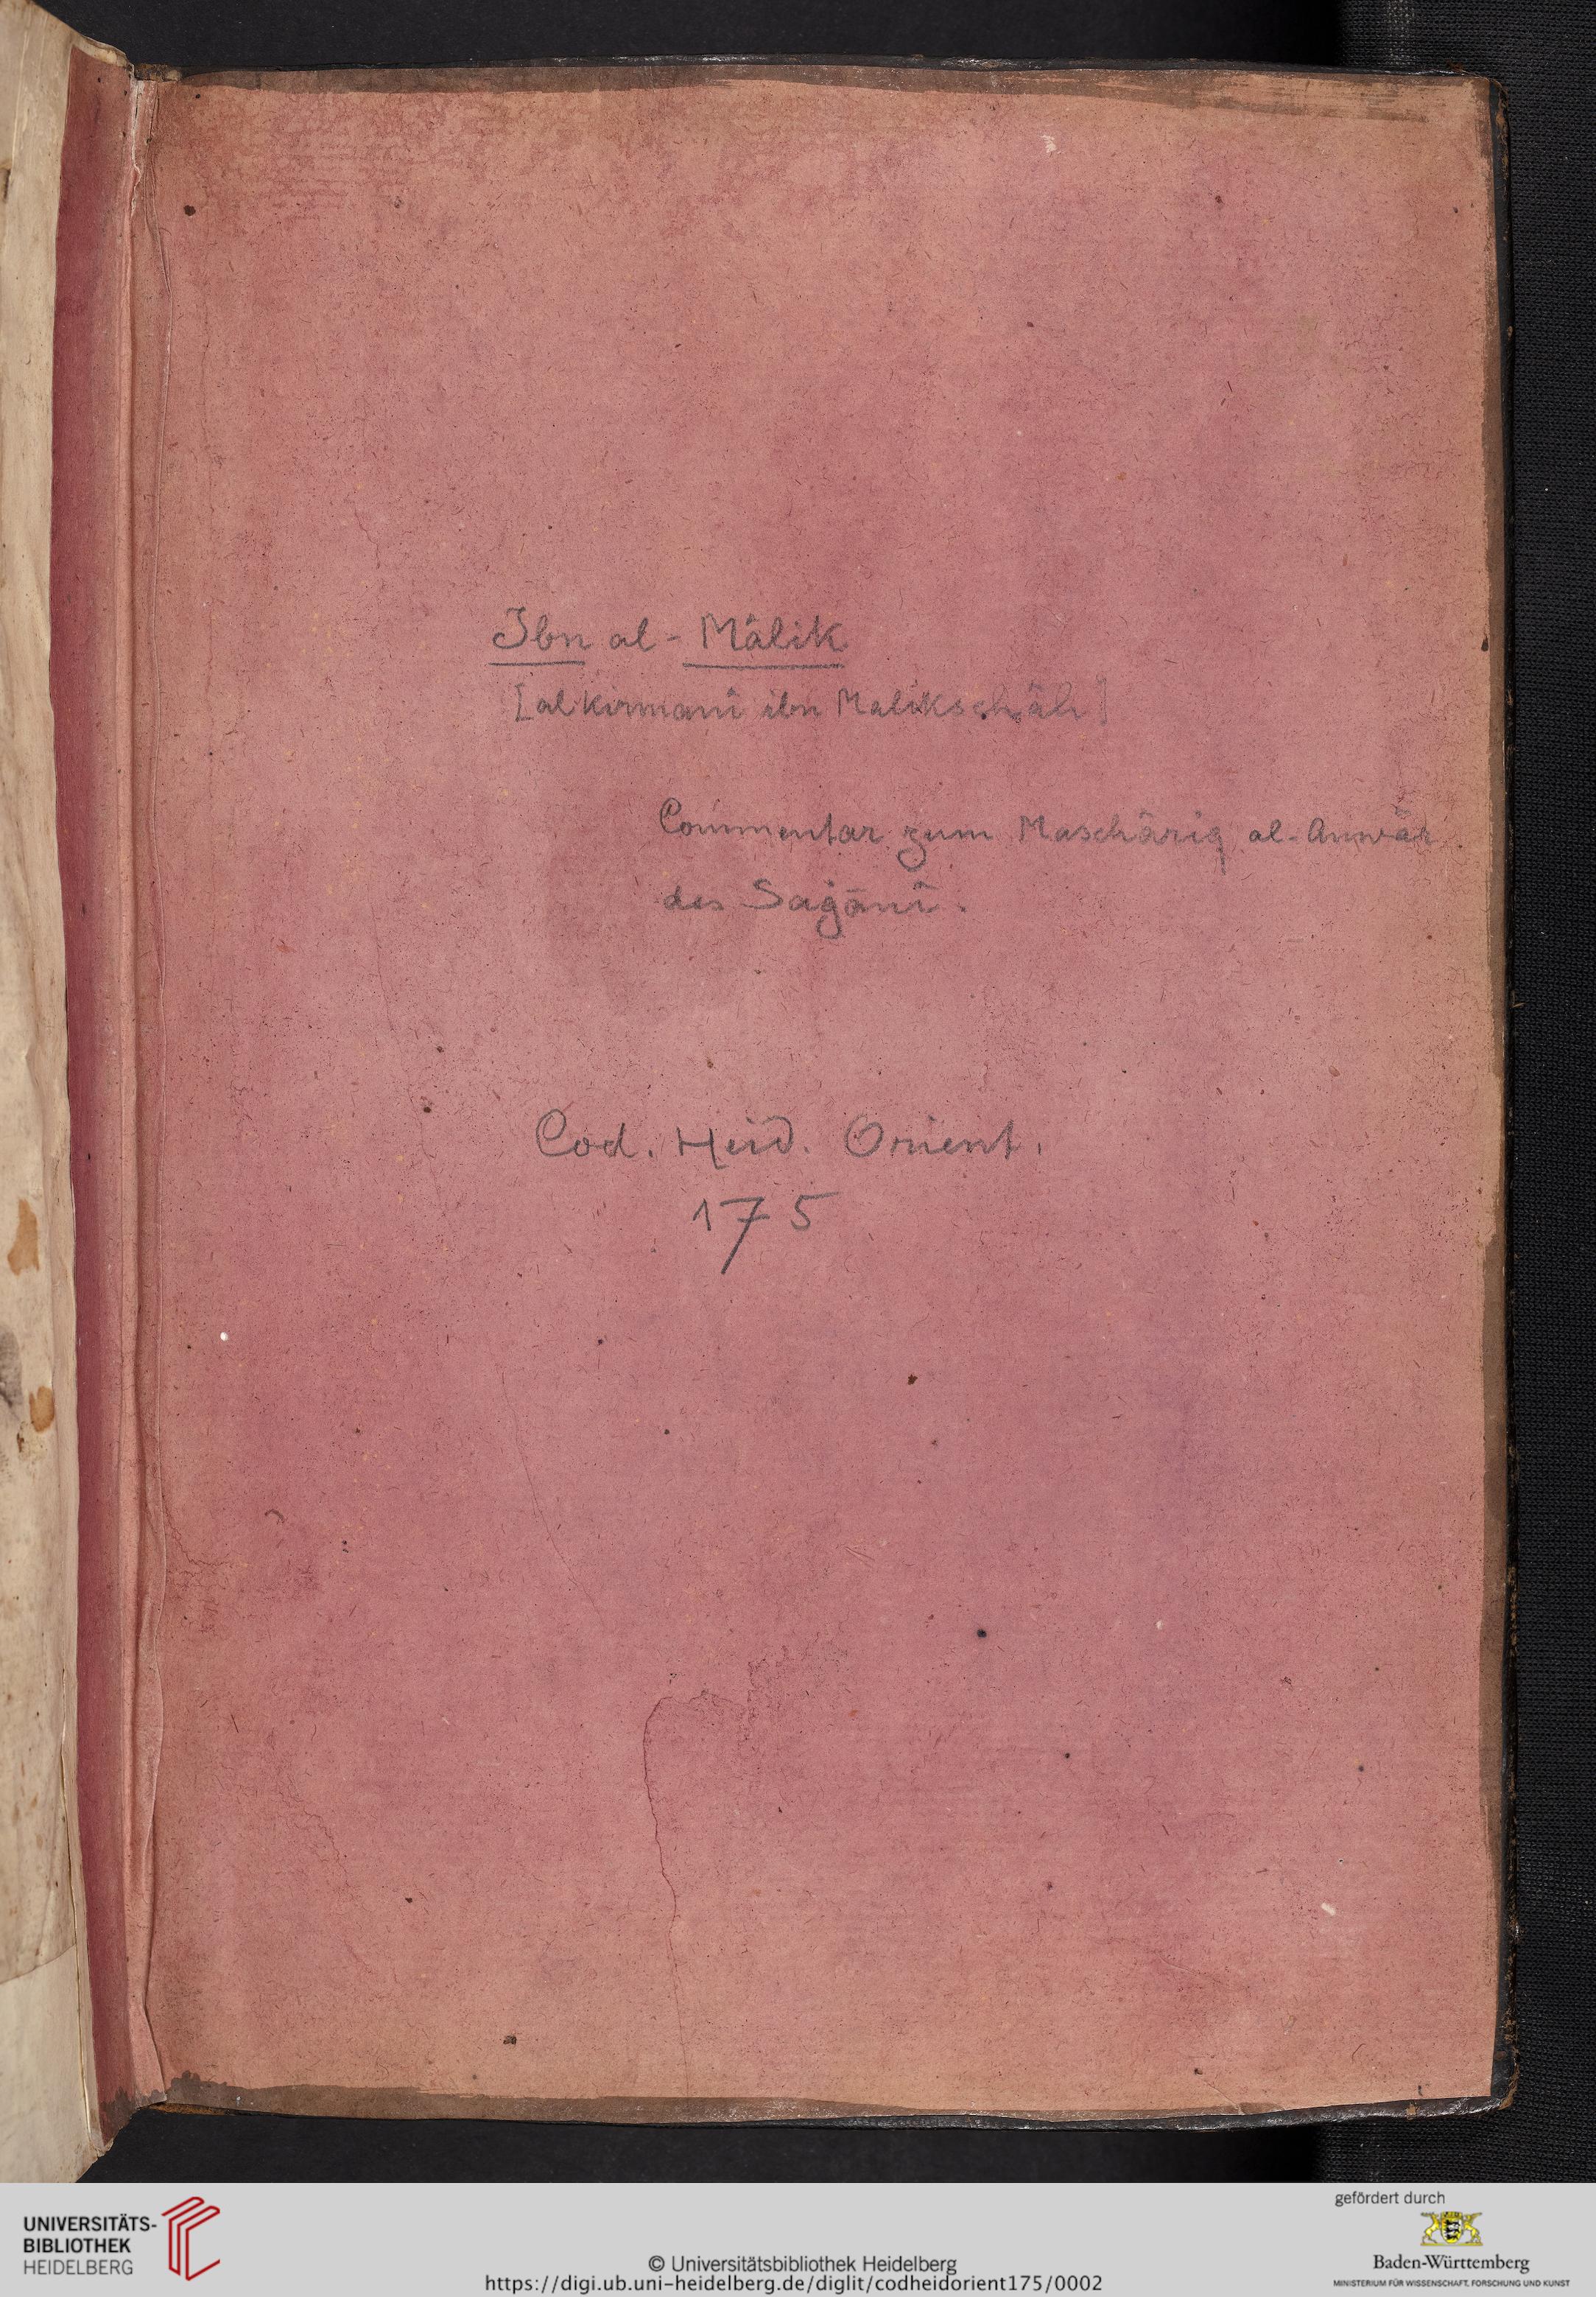 Ibn al-Mâlik
[al kirmanî ibn Malikschâh]
Commentar zum Maschâriq al-Anwâr
des Saġânî.
Cod. Heid. Orient.
175
UNIVERSITÄTS-
BIBLIOTHEK
HEIDELBERG
© Universitätsbibliothek Heidelberg
https://digi.ub.uni-heidelberg.de/diglit/codheidorient175/0002
gefördert durch
Baden-Württemberg
MINISTERIUM FÜR WISSENSCHAFT, FORSCHUNG UND KUNST